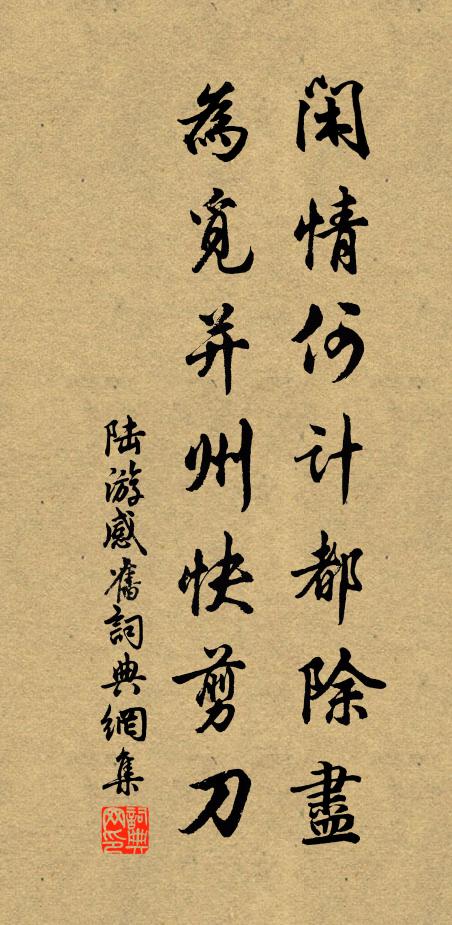 閑情何計都除盡
為覓并州快剪刀
陆游感舊詞典網集
詞典网印